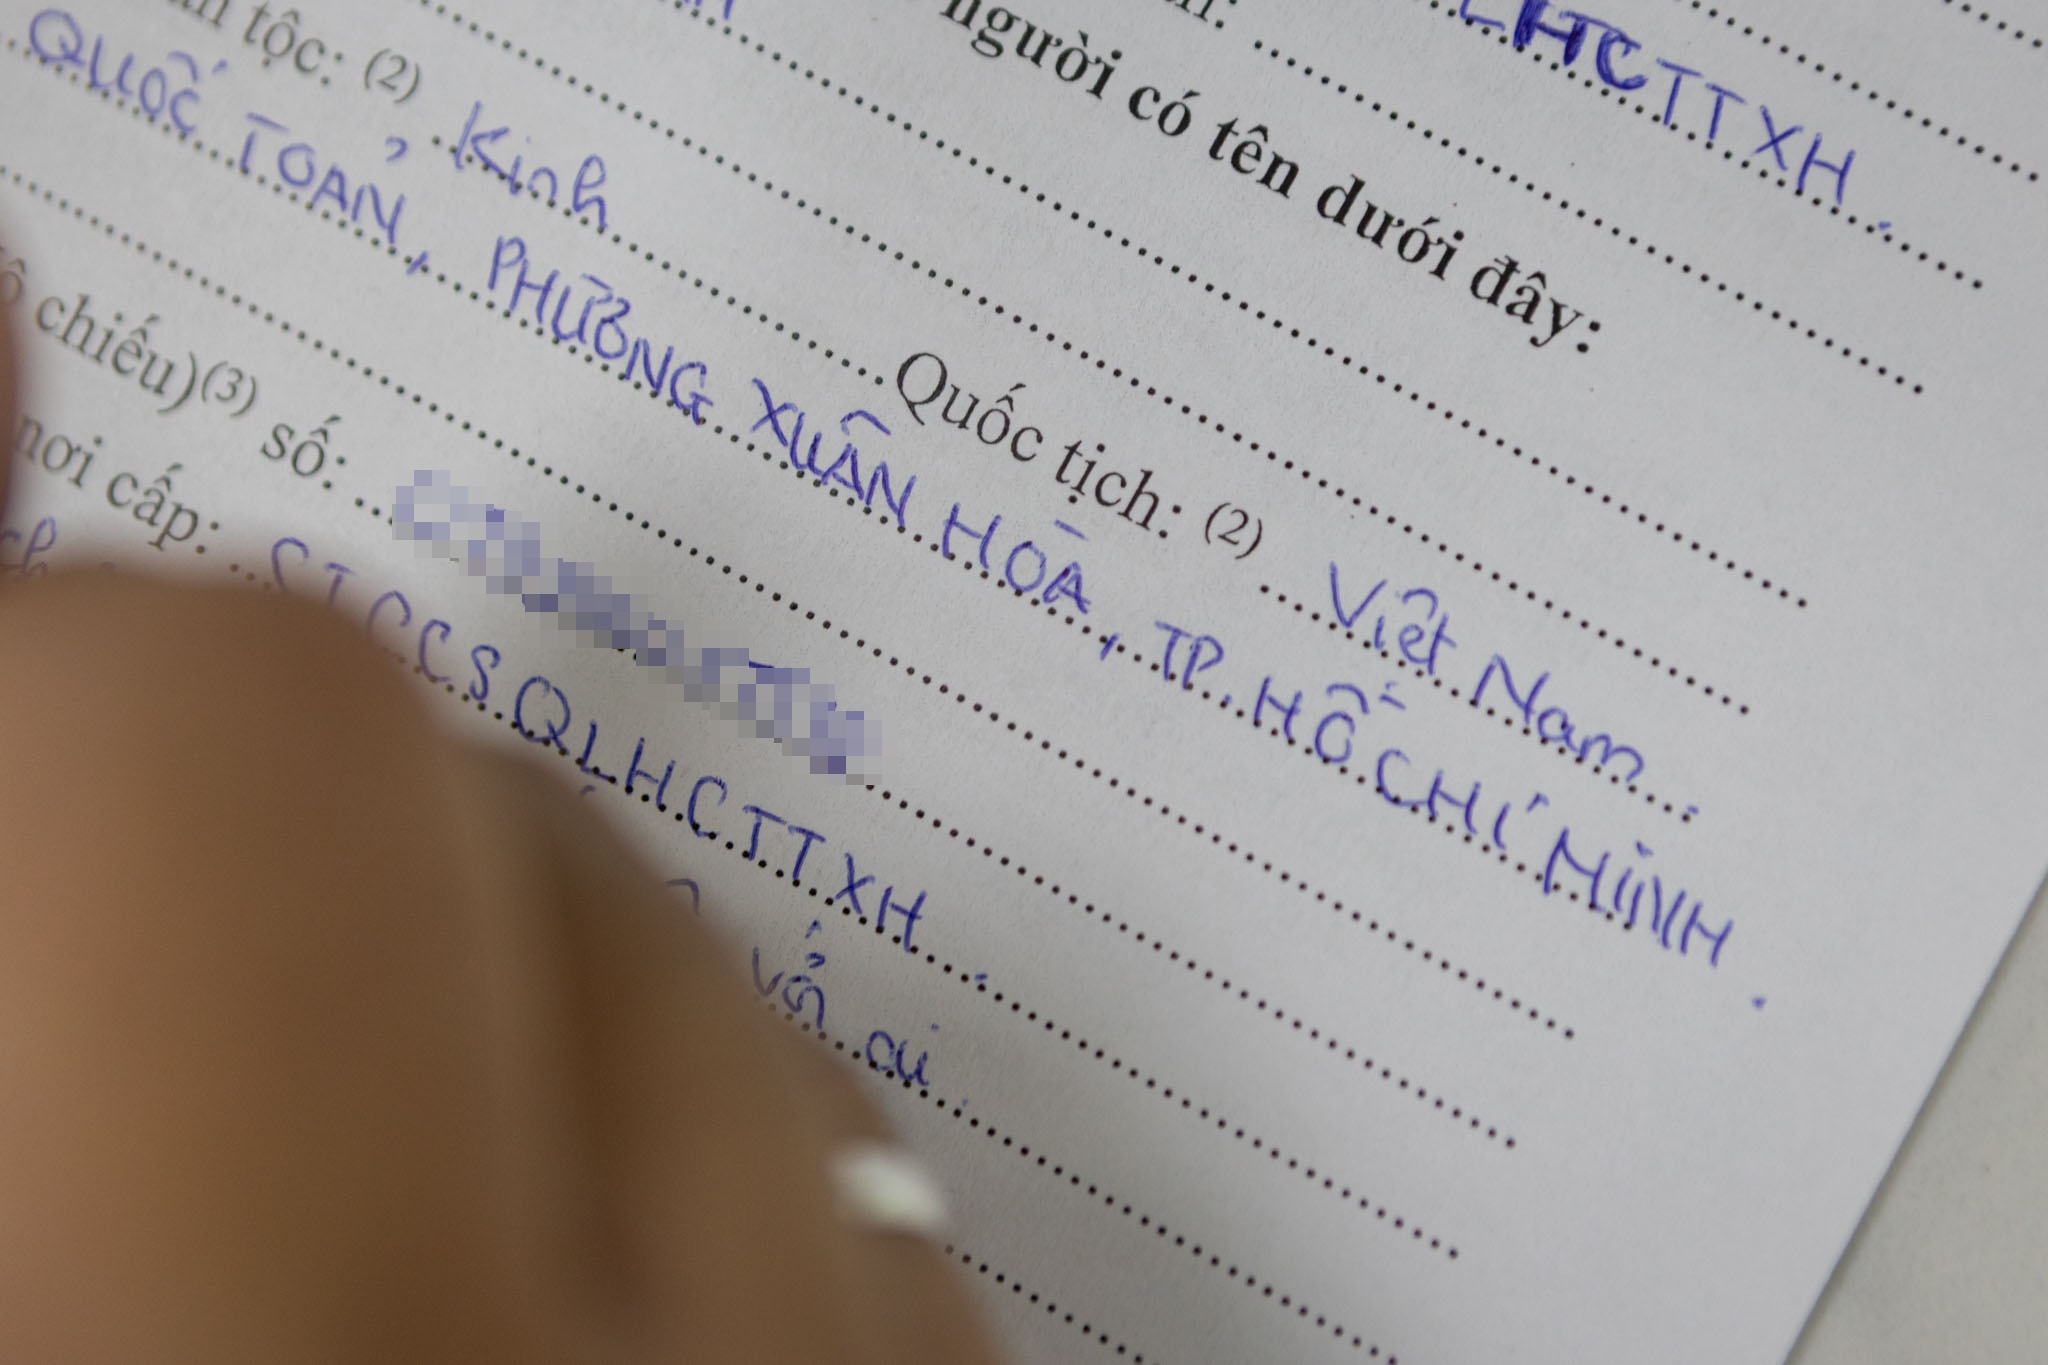 LHCTTXH.
người có tên dưới đây:
tộc: (2) Kinh Quốc tịch: (2) Việt Nam.
QUỐC TOẢN, PHƯỜNG XUÂN HOÀ, TP. HỒ CHÍ MINH.
chiếu)(3) số:
nơi cấp: CTCCSQLHCTTXH.
với ai